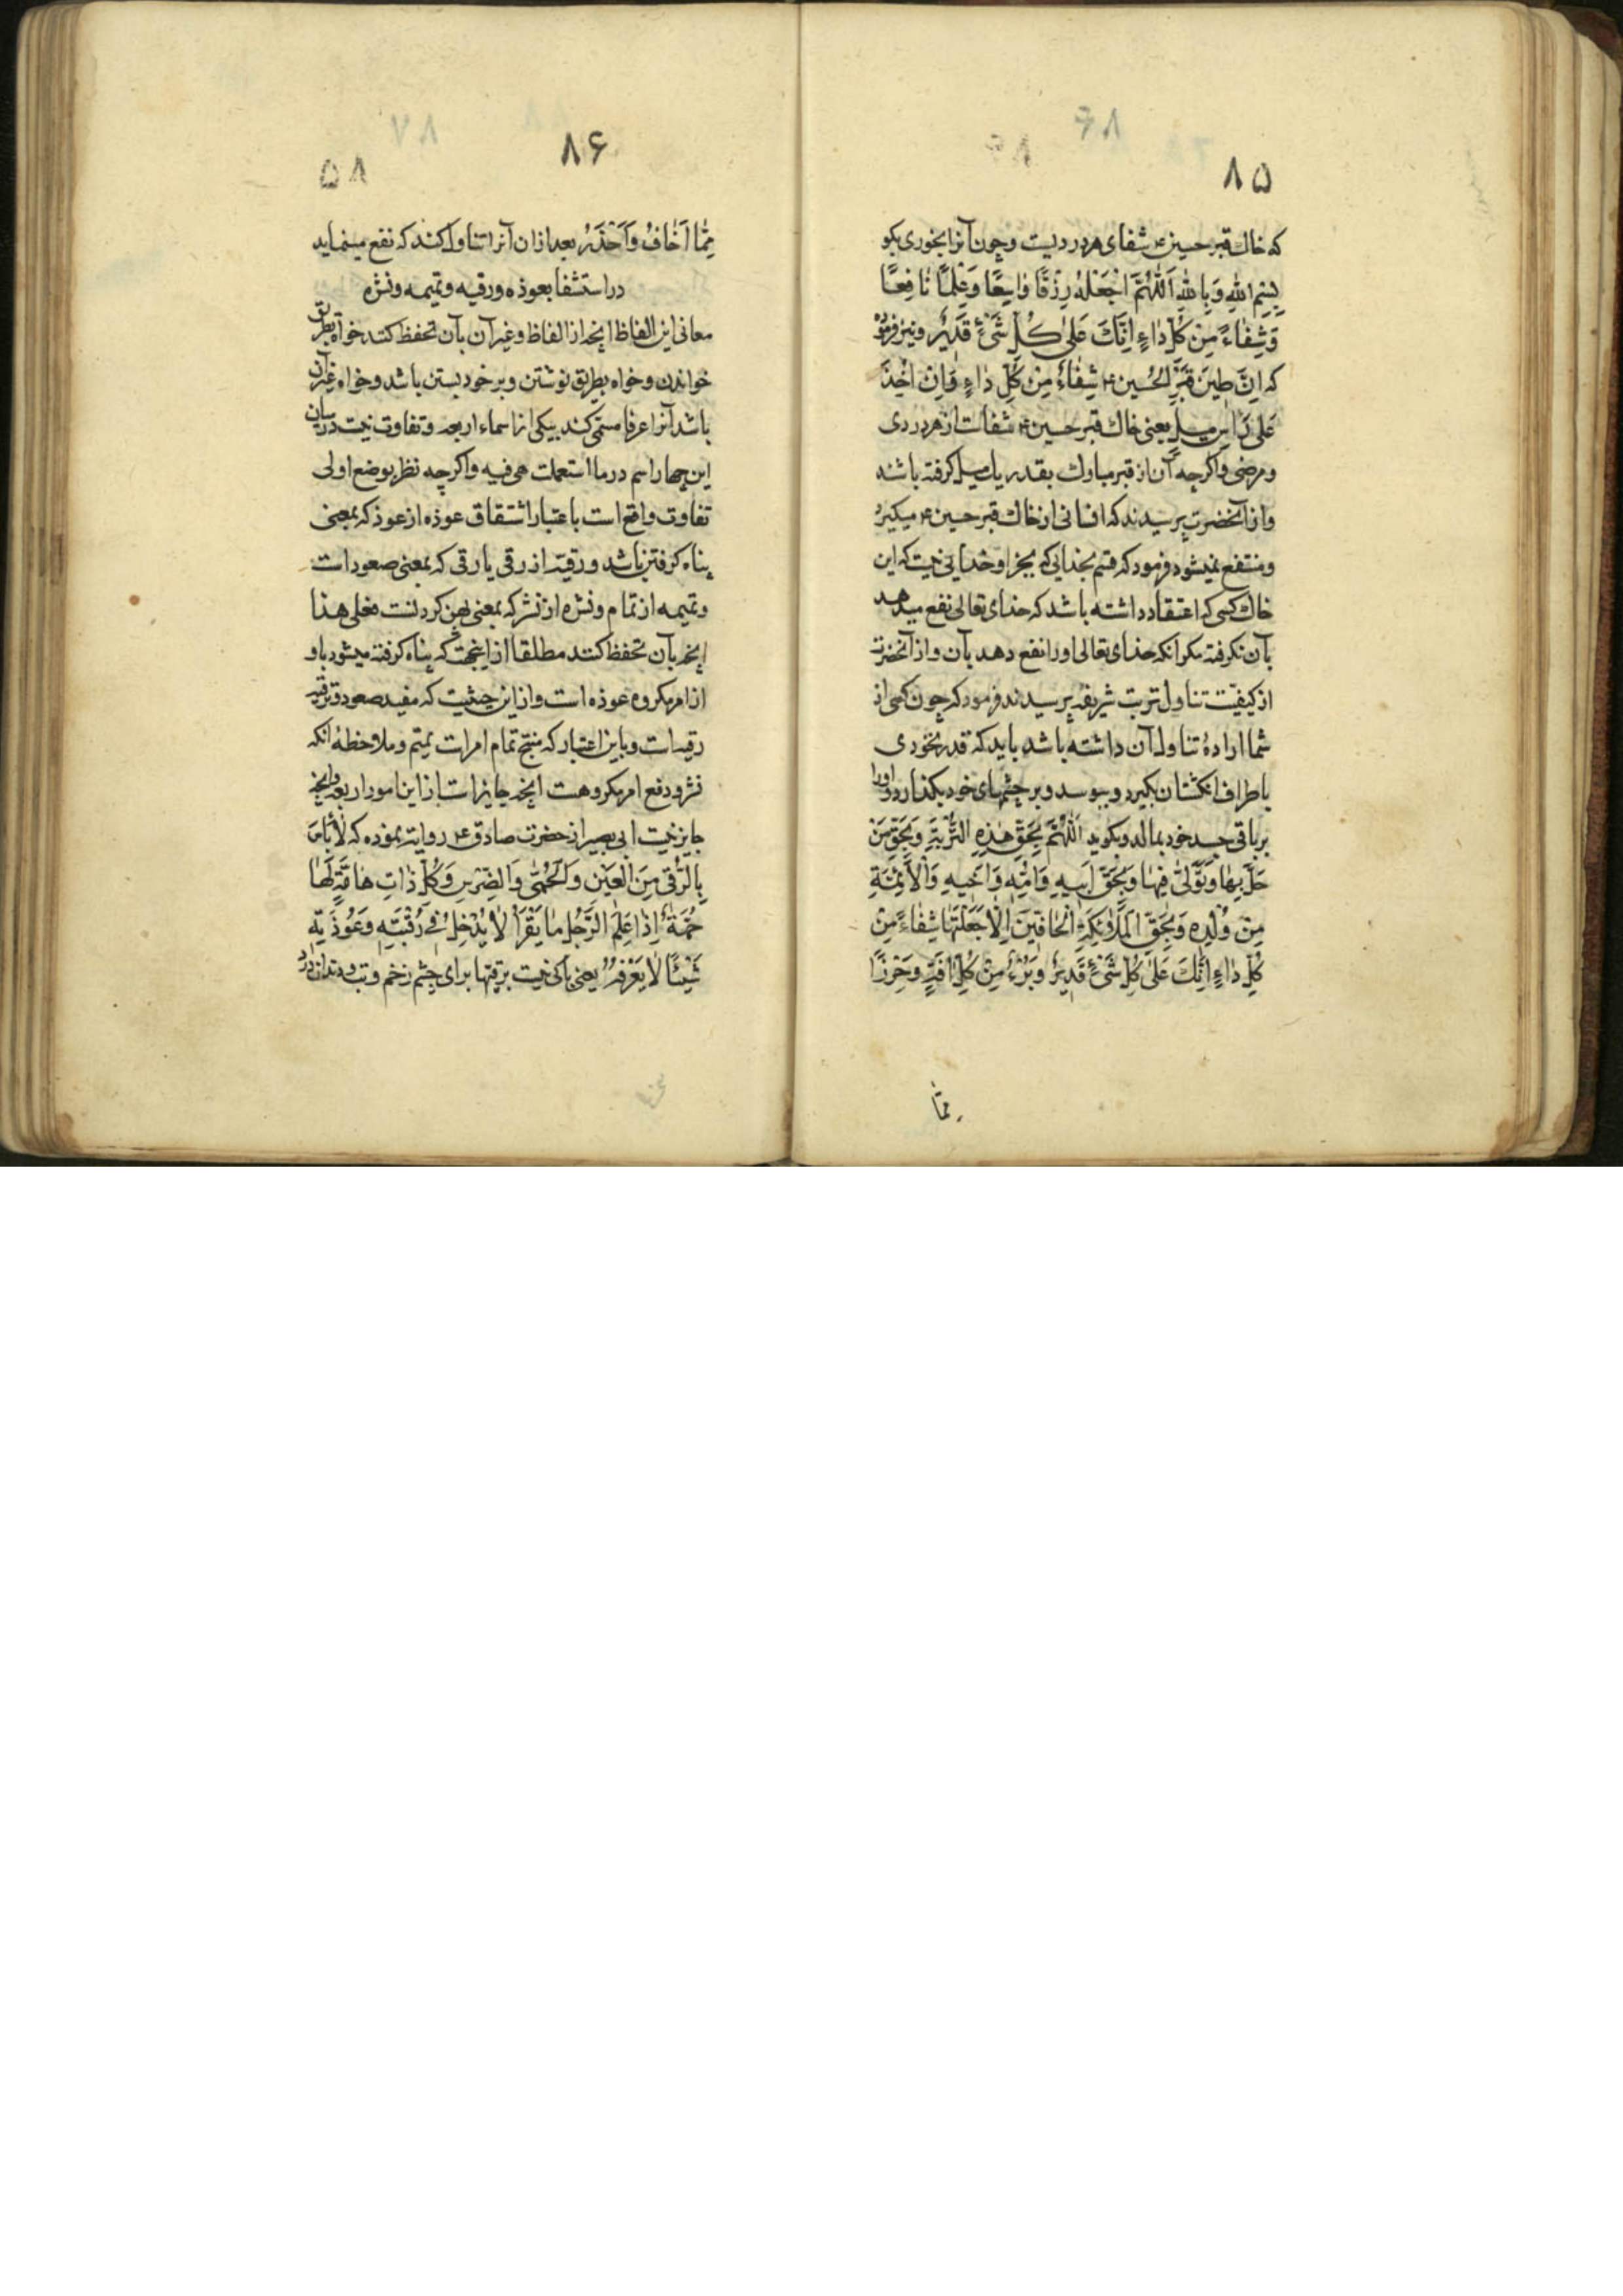 ۸۵
که خاک قبر حسین ع شفای هر دردیست و چون آنرا بخوری بکو
بِسْمِ اللهِ وَبِاللهِ اَللّٰهُمَّ اجْعَلْهُ رِزْقًا وٰاسِعًا وَعِلْمًا نٰافِعًا
وَشِفٰاءً مِنْ كُلِّ دٰاءٍ اِنَّكَ عَلىٰ كُلِّ شَیْءٍ قَدٖیرٌ و نیز فرموده
که اِنَّ طینَ قَبْرِ الْحُسین ع شِفٰاءٌ مِنْ كُلِّ دٰاءٍ وَاِنْ اُخِذَ
عَلىٰ رَاسِ میلٍ یعنی خاک قبر حسین ع شفاست از هر دردی
و مرضی واکرچه آن از قبر مبارک بقدر یک میل کرفته باشند
و از آنحضرت پرسیدند که انسانی از خاک قبر حسین ع میکیرد
و منتفع نمیشود فرمود که قسم بخدایی که بجز او خدایی نیست که این
خاک کسی که اعتقاد داشته باشد که خدای تعالی نفع میدهد
بآن نکرفته مکر آنکه خدای تعالی او را نفع دهد بآن و از آنحضرت
از کیفیّت تناول تربت شریفه پرسیدند فرمود که چون کسی از
شما ارادهٔ تناول آن داشته باشد باید که قدر نخودی
باطراف انکشتان بکیرد و ببوسد و بر چشمهای خود بکذارد و او را
بر باقی جسد خود بمالد و بکوید اَللّٰهُمَّ بِحَقِّ هٰذِهِ التُّرْبَةِ وَبِحَقِّ مَنْ
حَلَّ بِهٰا وَتَوَلّىٰ فِیهٰا وَبِحَقِّ اَبیهِ وَاُمِّهٖ وَاَخیهِ وَالْاَئِمَّةِ
مِنْ وُلْدِهٖ وَبِحَقِّ الْمَلٰائِكَةِ الْحٰافّینَ اِلّٰا جَعَلْتَهٰا شِفٰاءً مِنْ
كُلِّ دٰاءٍ اِنَّكَ عَلىٰ كُلِّ شَیْءٍ قَدیرٌ وَبُرْءً مِنْ كُلِّ اٰفَةٍ وَحِرْزًا
ممّا
۸۶
۸۵
مِمّٰا اَخٰافُ وَاَحْذَرُ بعد از ان آنرا تناول کند که نفع مینماید
در استشفا بعوذه و رقیه و تمیمه و نشره
معانی این الفاظ انچه از الفاظ و غیر آن بآن تحفظ کنند خواه بطریق
خواندن و خواه بطریق نوشتن و بر خود بستن باشد و خواه غیر آن
باشد آنرا عرفا مسمّی کنند بیکی از اسماء اربعه و تفاوت نیست درمیان
این چهار اسم در ما استعملت هی فیه واکرچه نظر بوضع اولی
تفاوت واقع است باعتبار اشتقاق عوذه از عوذ که بمعنی
پناه کرفتن باشد و رقیّه از رقی یا رقی که بمعنی صعود است
و تمیمه از تمام و نشره از نشر که بمعنی پهن کردنست فعلی هذا
انچه بآن تحفظ کنند مطلقا از اینجهت که پناه کرفته میشود باو
از امر مکروه عوذه است و از این حیثیت که مفید صعود و ترقیه
رقیه است و باین اعتبار که منتج تمام امر است یمتم و ملاحظهٔ انکه
نشر و دفع امر مکروهست انچه جایز است از این امور اربعه و انچه
جایز نیست ابی بصیر از حضرت صادق ع روایة نموده که لٰا بَأسَ
بِالرُّقىٰ مِنَ الْعَیْنِ وَالْحُمّىٰ وَالضِّرْسِ وَكُلِّ ذٰاتِ هٰامَّةٍ لَهٰا
حُمَةٌ اِذٰا عَلِمَ الرَّجُلُ مٰا یَقْرَأُ لٰا یُدْخِلُ فی رُقْیَتِهٖ وَعُوذَتِهٖ
شَیْئًا لٰا یَعْرِفُهُ یعنی باکی نیست برقیتها برای چشم زخم و تب و دندان درد